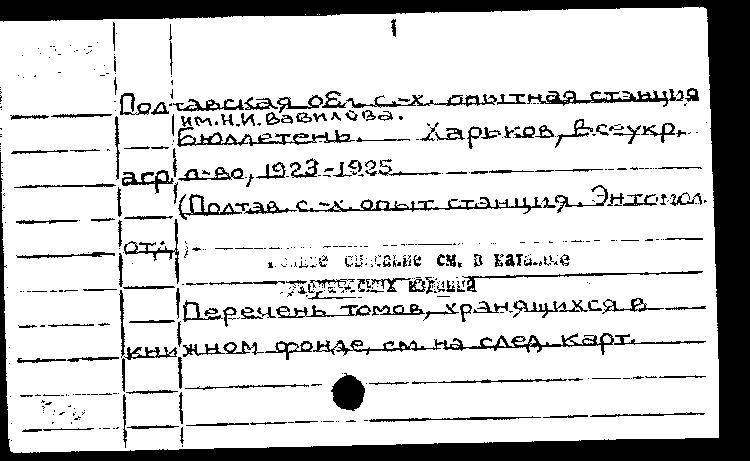 1
Полтавская обл. с.-х. опытная станция
им. Н.И. Вавилова.
Бюллетень. Харьков, Всеукр.
агр. о-во, 1923-1925.
(Полтав. с.-х. опыт. станция. Энтомол.
отд.)-
описание см. в каталоге
изданий
Перечень томов, хранящихся в
книжном фонде, см. на след. карт.